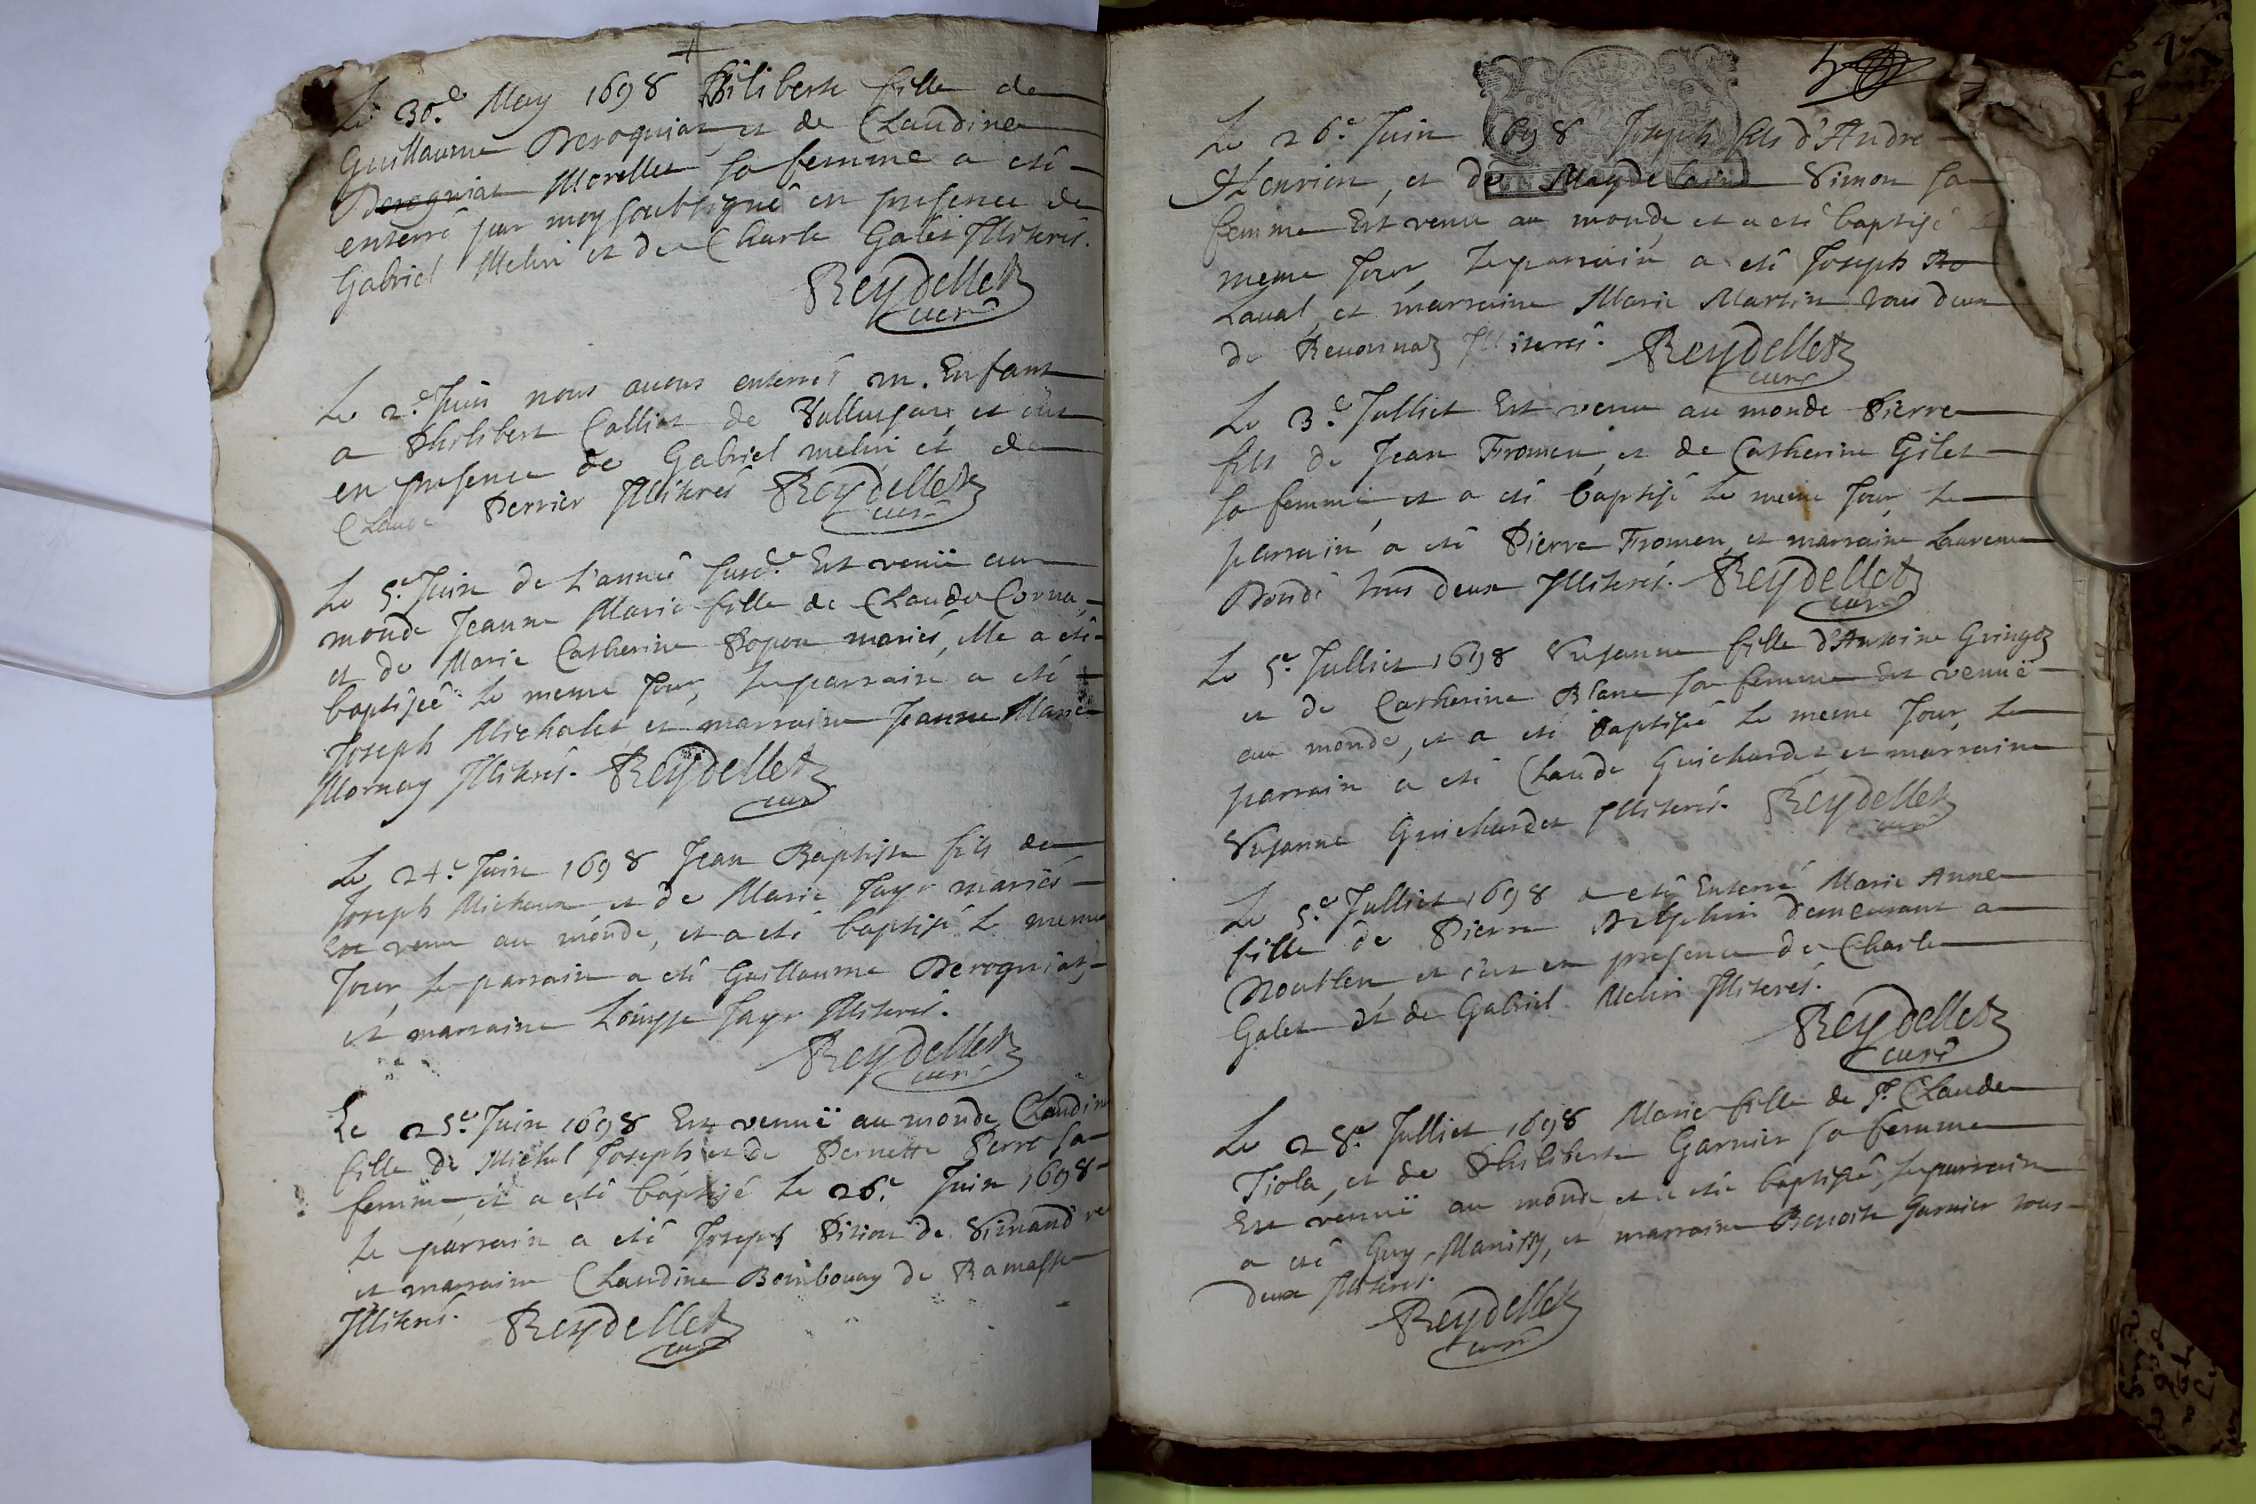 Le 30.e May 1698 Philiberte fille de
Guillaume Deroguiat et de Claudine
Deroguiat Morellet sa femme a eté
enterré par moy soubsigné en presence de
Gabriel Melin et de Charle Galet Illiterés.
Reydellet
curé
Le 2.e Juin nous avons enterré un Enfant
a Philibert Calliat de et c'est
en presence de Gabriel melin et de
Claude Perrier Illiterés Reydellet
curé
Le 5.e Juin de l'année susd.e Est venuë au
monde Jeanne Marie fille de Claude Corna,
et de Marie Catherine Popon mariés, elle a eté
baptisée le meme Jour, le parrain a eté
Joseph Michalet et marraine Jeanne Marie
Mornay Illiterés. Reydellet
curé
Le 24.e Juin 1698 Jean Baptiste fils de
Joseph Michaux et de Marie Jayr mariés
Est venu au monde, et a eté baptisé le meme
Jour, le parrain a eté Guillaume Deroguiat,
et marraine Louyse Jayr Illiterés.
Reydellet
curé
Le 25.e Juin 1698 Est venuë au monde Claudine
fille de Michel Joseph et de Pernette Perret sa
femme, et a eté baptisé le 26.e Juin 1698
le parrain a eté Joseph Pition de Simandre
et marraine Claudine Bombouay de Ramasse
Illiterés. Reydellet
curé
5
Le 26.e Juin 1698 Joseph fils d'André
Henrion, et de Magdelaine Simon sa
femme Est venu au monde et a eté baptisé le
meme Jour, le parrain a eté Joseph Ro
Laval, et marraine Marie Martin tous deux
de Revonnaz Illiterés. Reydellet
curé
Le 3.e Julliet Est venu au monde Pierre
fils de Jean Fromen, et de Catherine Gilet
sa femme et a eté baptisé le meme Jour, le
parrain a eté Pierre Fromen, et marraine Laurence
Dondé tous deux Illiterés. Reydellet
curé
Le 5.e Julliet 1698 Susanne fille d'Antoine Gringoz
et de Catherine Blanc sa femme Est venuë
au monde, et a eté baptisée le meme Jour, le
parrain a eté Claude Guichardet et marraine
Susanne Guichardet Illiterés. Reydellet
curé
Le 5.e Julliet 1698 a eté Enterré Marie Anne
fille de Pierre Delphin demeurant a
et c'est en presence de Charle
Galet et de Gabriel Melin Illiterés.
Reydellet
curé
Le 28.e Julliet 1698 Marie fille de J. Claude
Tiola, et de Philiberte Garnier sa femme
Est venuë au monde et a eté baptisée, le parrain
a eté Guy et marraine Benoite Garnier tous
deux Illiterés.
Reydellet
curé